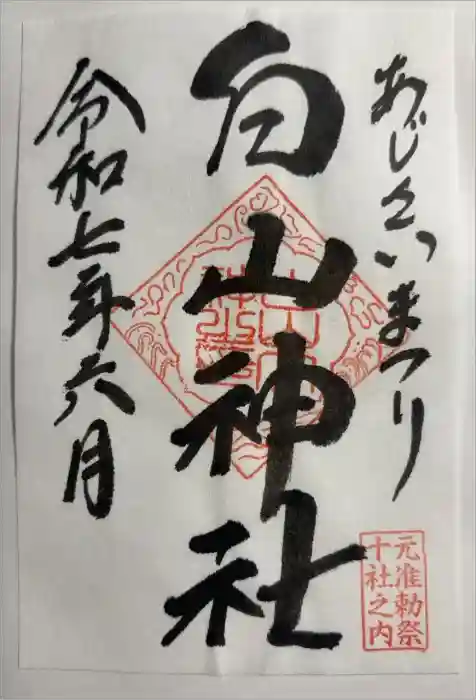 あじさいまつり
白山神社
令和七年六月
元准勅祭
十社之内